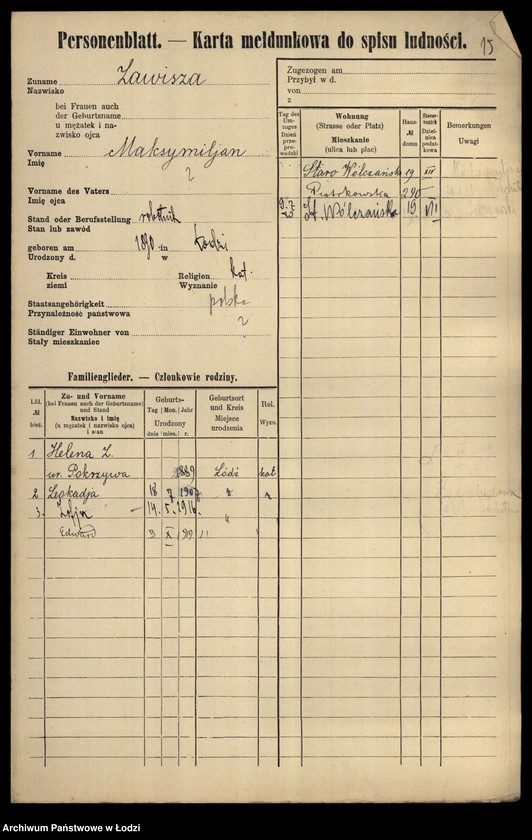 Personenblatt. — Karta meldunkowa do spisu ludności.
15
Zuname Zawisza
Nazwisko
bei Frauen auch
der Geburtsname
u mężatek i na-
zwisko ojca
Vorname Maksymiljan
Imię
Vorname des Vaters
Imię ojca
Stand oder Berufsstellung robotnik
Stan lub zawód
geboren am 1890 in Łodzi
Urodzony d. w
Kreis Religion kat.
ziemi Wyznanie
Staatsangehörigkeit polska
Przynależność państwowa
Ständiger Einwohner von
Stały mieszkaniec
Zugezogen am
Przybył w d.
von
z
Tag des Um-zuges Dzień prze-prowadzki
Wohnung (Strasse oder Platz) Mieszkanie (ulica lub plac)
Haus-№ domu
Steuer-bezirk Dzielnica podatkowa
Bemerkungen Uwagi
Staro Wólczańska 19 XII
Piotrkowska 290
St. Wólczańska 19 VII
Familienglieder. — Członkowie rodziny.
Lfd. № bież.
Zu- und Vorname (bei Frauen auch der Geburtsname) und Stand Nazwisko i imię (u mężatek i nazwisko ojca) i stan
Geburts- Tag Mon. Jahr Urodzony dnia mies. r.
Geburtsort und Kreis Miejsce urodzenia
Rel. Wyzn.
1 Helena Z.
ur. Pokrzywa 1889 Łódź kat
2 Leokadja 18 7 1907 "
3. Zofja 14. 5. 1916. "
Edward X 
Archiwum Państwowe w Łodzi